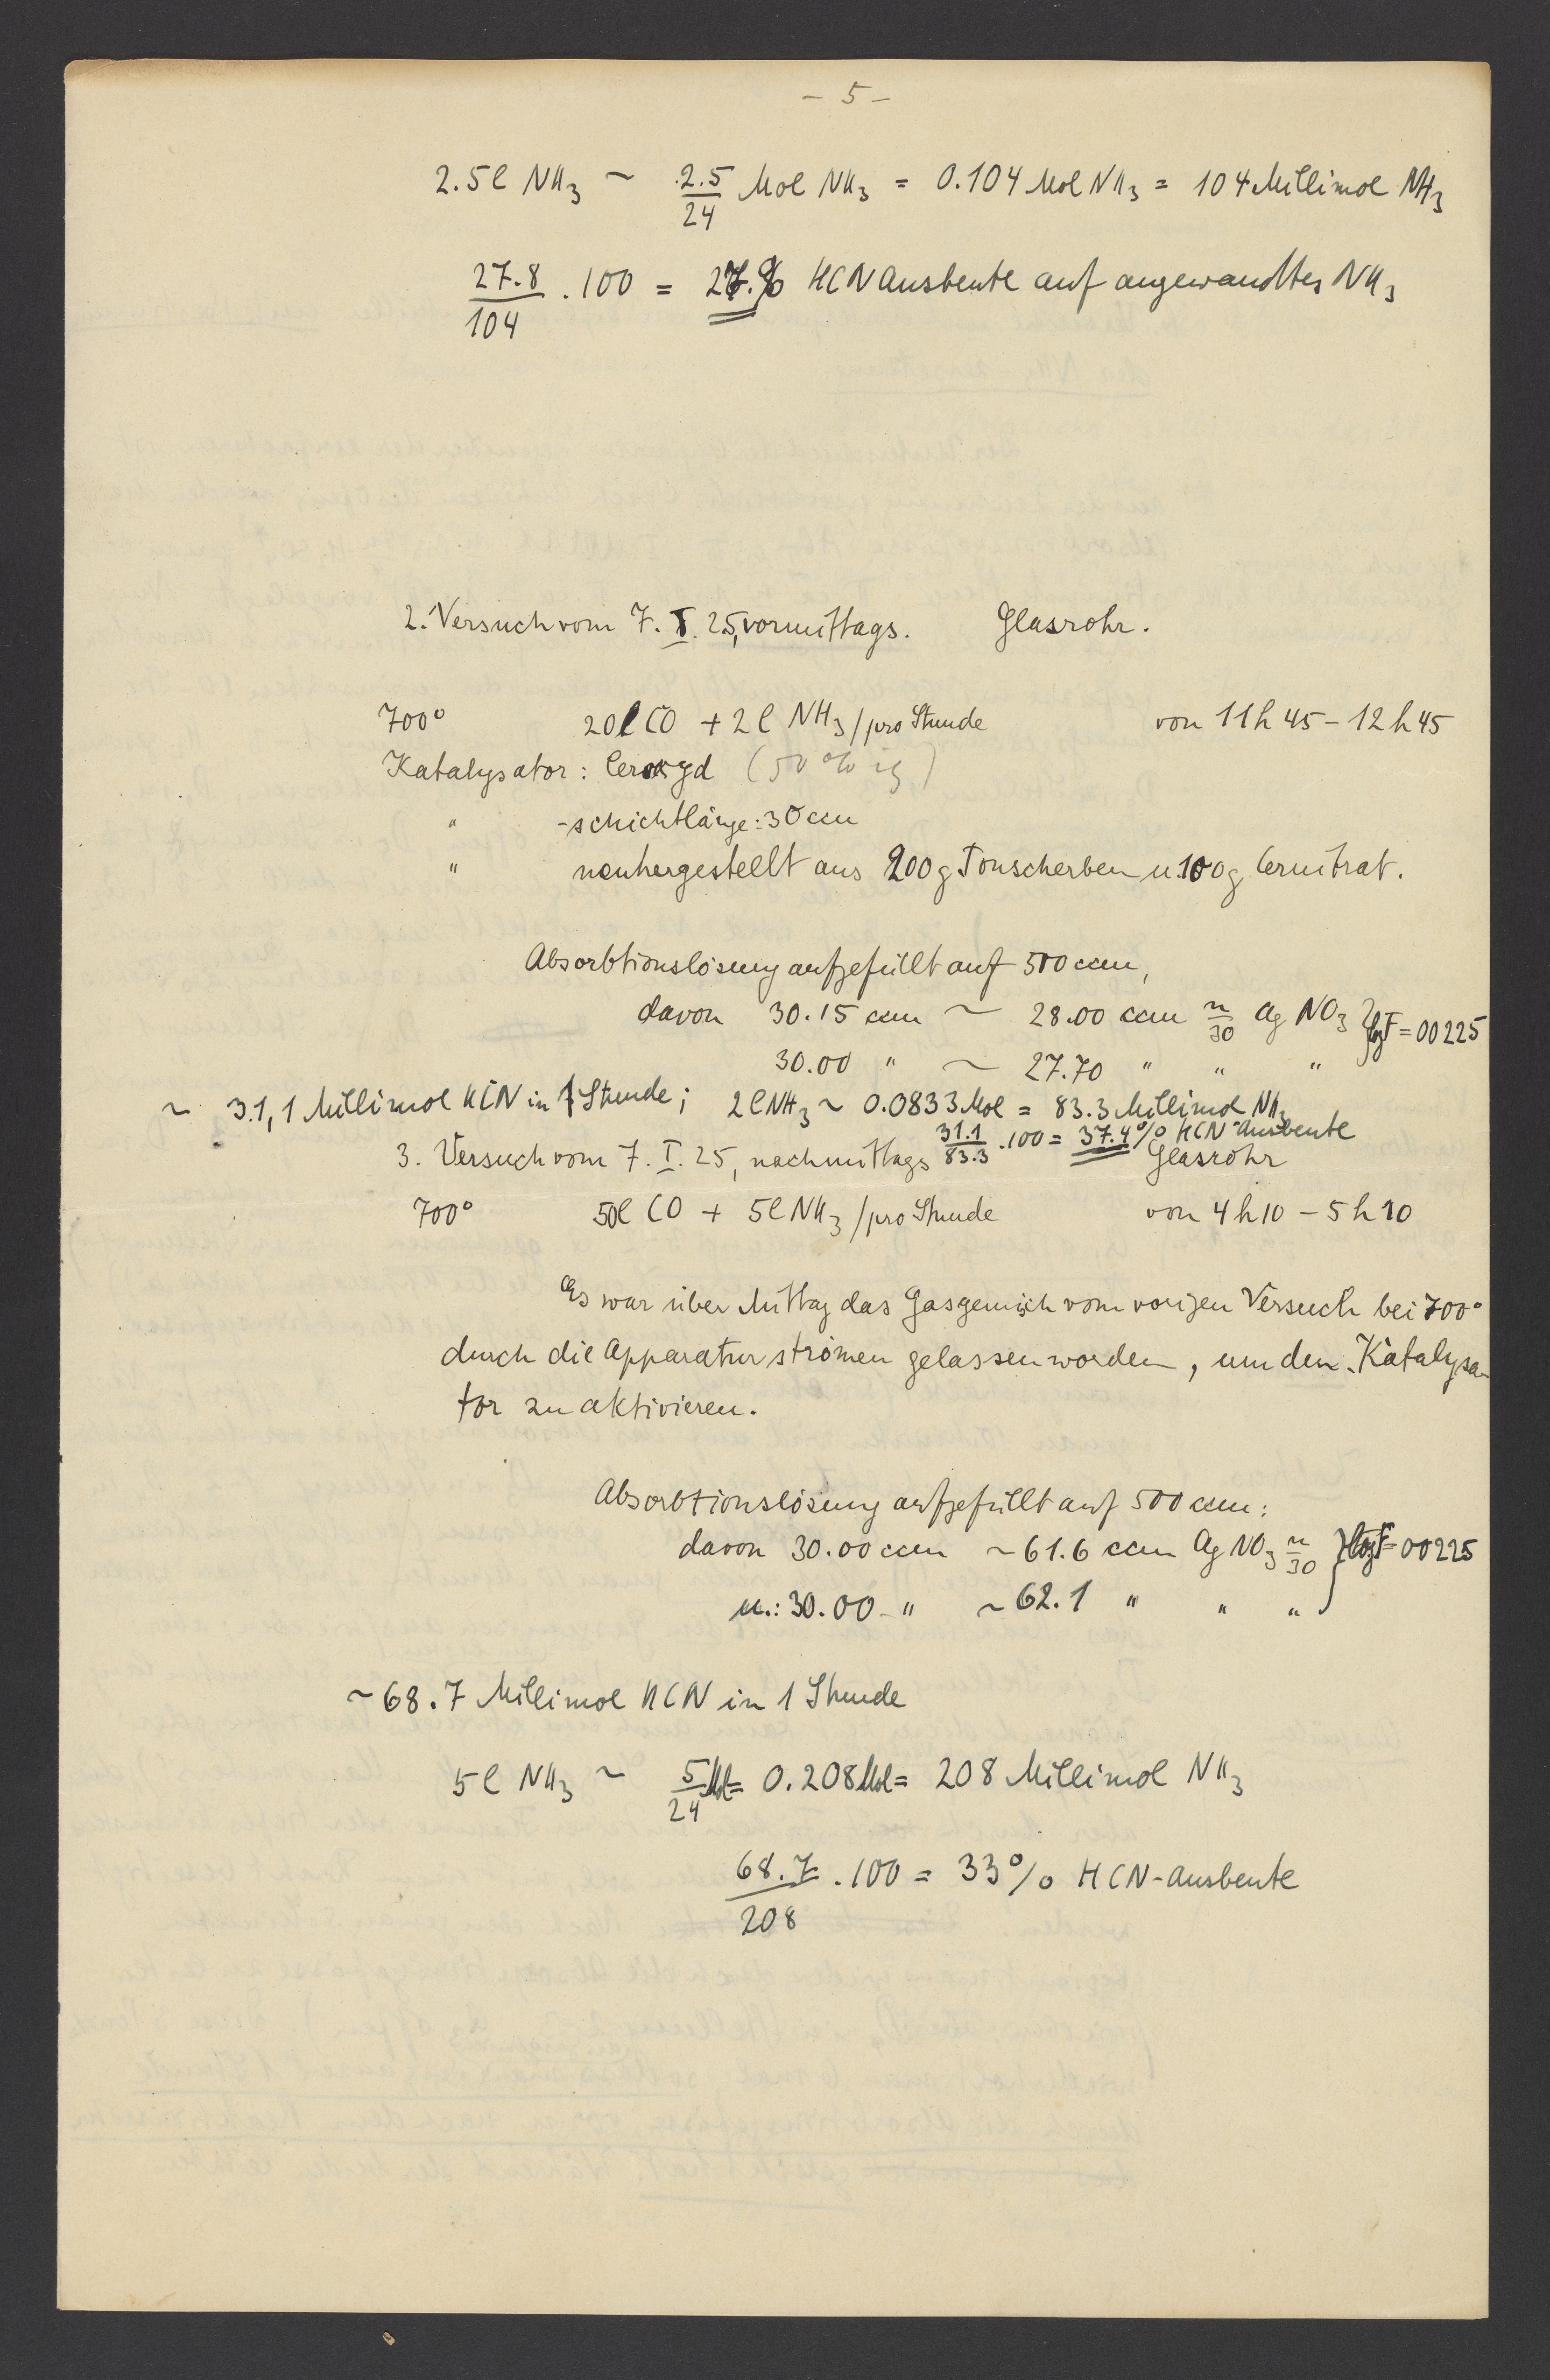 - 5 -
2.5 l NH3 ~ 2.5/24 Mol NH3 = 0.104 Mol NH3 = 104 Millimol NH3
27.8/104 . 100 = 27.% HCN Ausbeute auf angewandtes NH3
2. Versuch vom 7. I. 25, vormittags. Glasrohr.
700° 20 l CO + 2 l NH3 / pro Stunde von 11 h 45 - 12 h 45
Katalysator: Ceroxyd (50 %ig)
" -schichtlänge: 30 cm
" neuhergestellt aus 200 g Tonscherben u. 100 g Cernitrat.
Absorbtionslösung aufgefüllt auf 500 ccm,
davon 30.15 ccm ~ 28.00 ccm n/30 Ag NO3 } lg F = 00225
30.00 " ~ 27.70 " " "
~ 31,1 Millimol HCN in 1 Stunde; 2 l NH3 ~ 0.0833 Mol = 83.3 Millimol NH3
31.1/83.3 . 100 = 37.4 % HCN-Ausbeute
3. Versuch vom 7. I. 25, nachmittags Glasrohr
700° 50 l CO + 5 l NH3 / pro Stunde von 4 h 10 - 5 h 10
Es war über Mittag das Gasgemisch vom vorigen Versuch bei 700°
durch die Apparatur strömen gelassen worden, um den Katalysa-
tor zu aktivieren.
Absorbtionslösung aufgefüllt auf 500 ccm:
davon 30.00 ccm ~ 61.6 ccm Ag NO3 n/30 } log F = 00225
u.: 30.00 " ~ 62.1 " " "
~ 68.7 Millimol HCN in 1 Stunde
5 l NH3 ~ 5/24 Mol = 0.208 Mol = 208 Millimol NH3
68.7/208 . 100 = 33 % HCN-Ausbeute